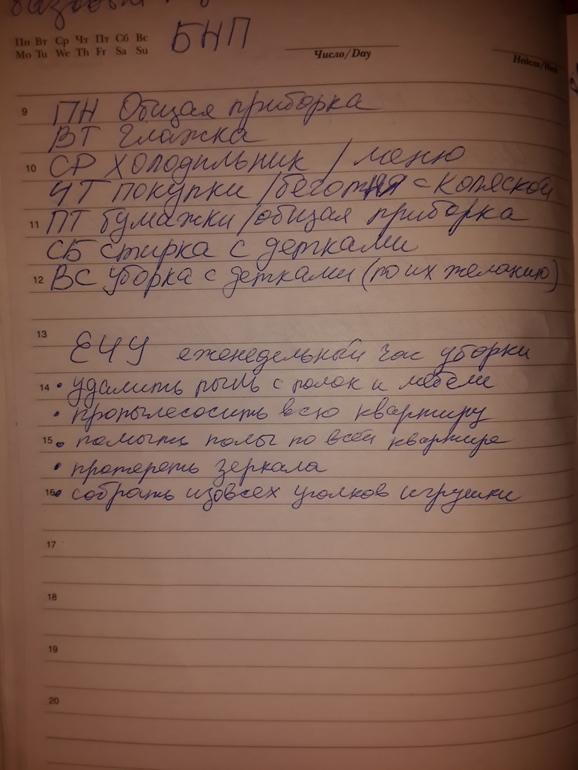 БНП
Пн Вт Ср Чт Пт Сб Вс
Mo Tu We Th Fr Sa Su
Число/Day
9 ПН Общая приборка
ВТ Глажка
10 СР холодильник / меню
ЧТ покупки /беготня с коляской
11 ПТ бумажки/общая приборка
СБ стирка с детками
12 ВС уборка с детками (по их желанию)
13
ЕЧУ еженедельный час уборки
14 • удалить пыль с полок и мебели
• пропылесосить всю квартиру
15 • помыть полы по всей квартире
• протереть зеркала
16 • собрать изо всех уголков игрушки
17
18
19
20